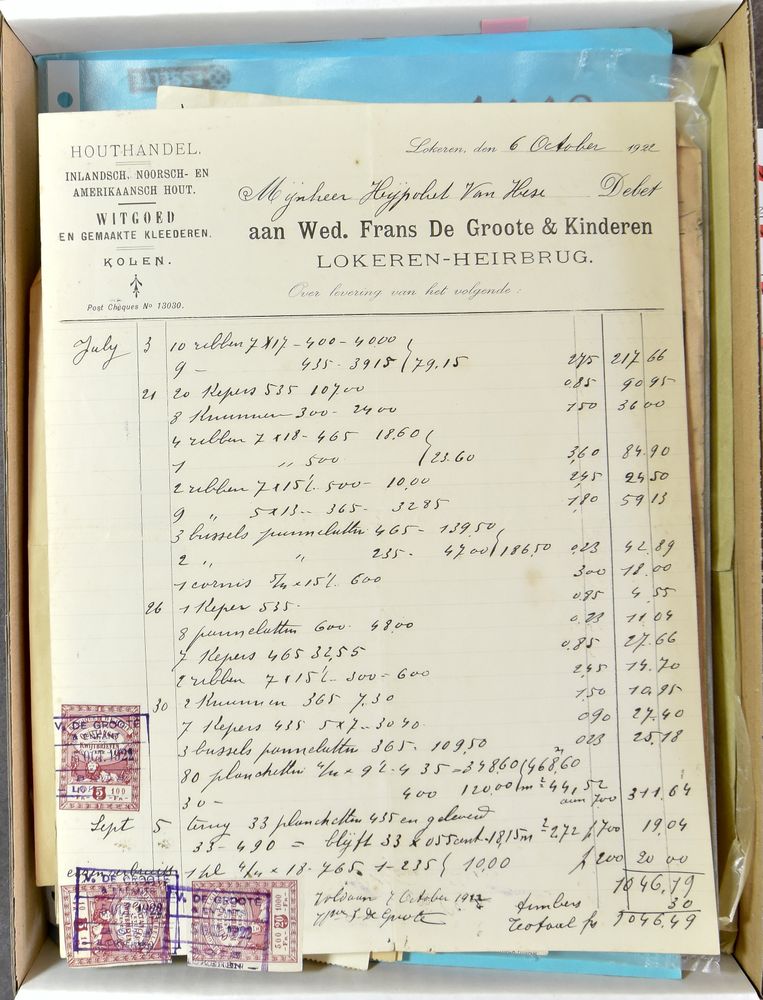 HOUTHANDEL.
INLANDSCH, NOORSCH- EN
AMERIKAANSCH HOUT.
WITGOED
EN GEMAAKTE KLEEDEREN.
KOLEN.
Post Chèques No 13030.
Lokeren, den 6 October 1922
Mijnheer Hijpoliet Van Hese Debet
aan Wed. Frans De Groote & Kinderen
LOKEREN-HEIRBRUG.
Over levering van het volgende :
July 3 10 ribben 7 X 17 - 400 - 4000
9 - 435 - 3915 79,15 275 217 66
21 20 Kepers 535 10700 0.85 90 95
8 300 - 2400 150 36 00
4 ribben 7 x 18 - 465 18.60
1 " 500 23.60 3,60 84.90
2 ribben 7 x 15 ½ 500 - 10,00 2,45 24 50
9 " 5 x 13 - 365 - 32 85 1,80 59 13
3 bussels pannelatten 465 - 139,50
2 " " 235 - 47 00 186 50 0,23 42.89
1 cornis x 15 ½ 600 300 18.00
26 1 Keper 535 - 0.85 4,55
8 pannelatten 600 - 48,00 0,23 11,04
7 Kepers 465 32,55 0,85 27.66
2 ribben 7 x 15 ½ - 300 - 600 2,45 14.70
30 2 365 7,30 1,50 10,95
7 Kepers 435 5 x 7 - 30 40 - 090 27-40
3 bussels pannelatten 365 - 109,50 023 25,18
80 planchetten x 9 ½ - 4 35 = 348 60 468,60
30 - 400 120,00 44,52 aan 700 311,64
Sept 5 terug 33 planchetten 455 en geleverd
33 - 490 = blijft 33 x 055 cent - 18,15 m 2,72 f 700 19,04
x 18 - 765 - 1 - 235 10,00 f 200 20 00
1046,19
Voldaan 7 October 1922 timbers 30
De Groote Totaal fr 1046,49
V. DE GROOTE
& ENFANT
OCT. 1922
5 100
V. DE GROOTE
V. DE GROOTE
1922
500 20 1000